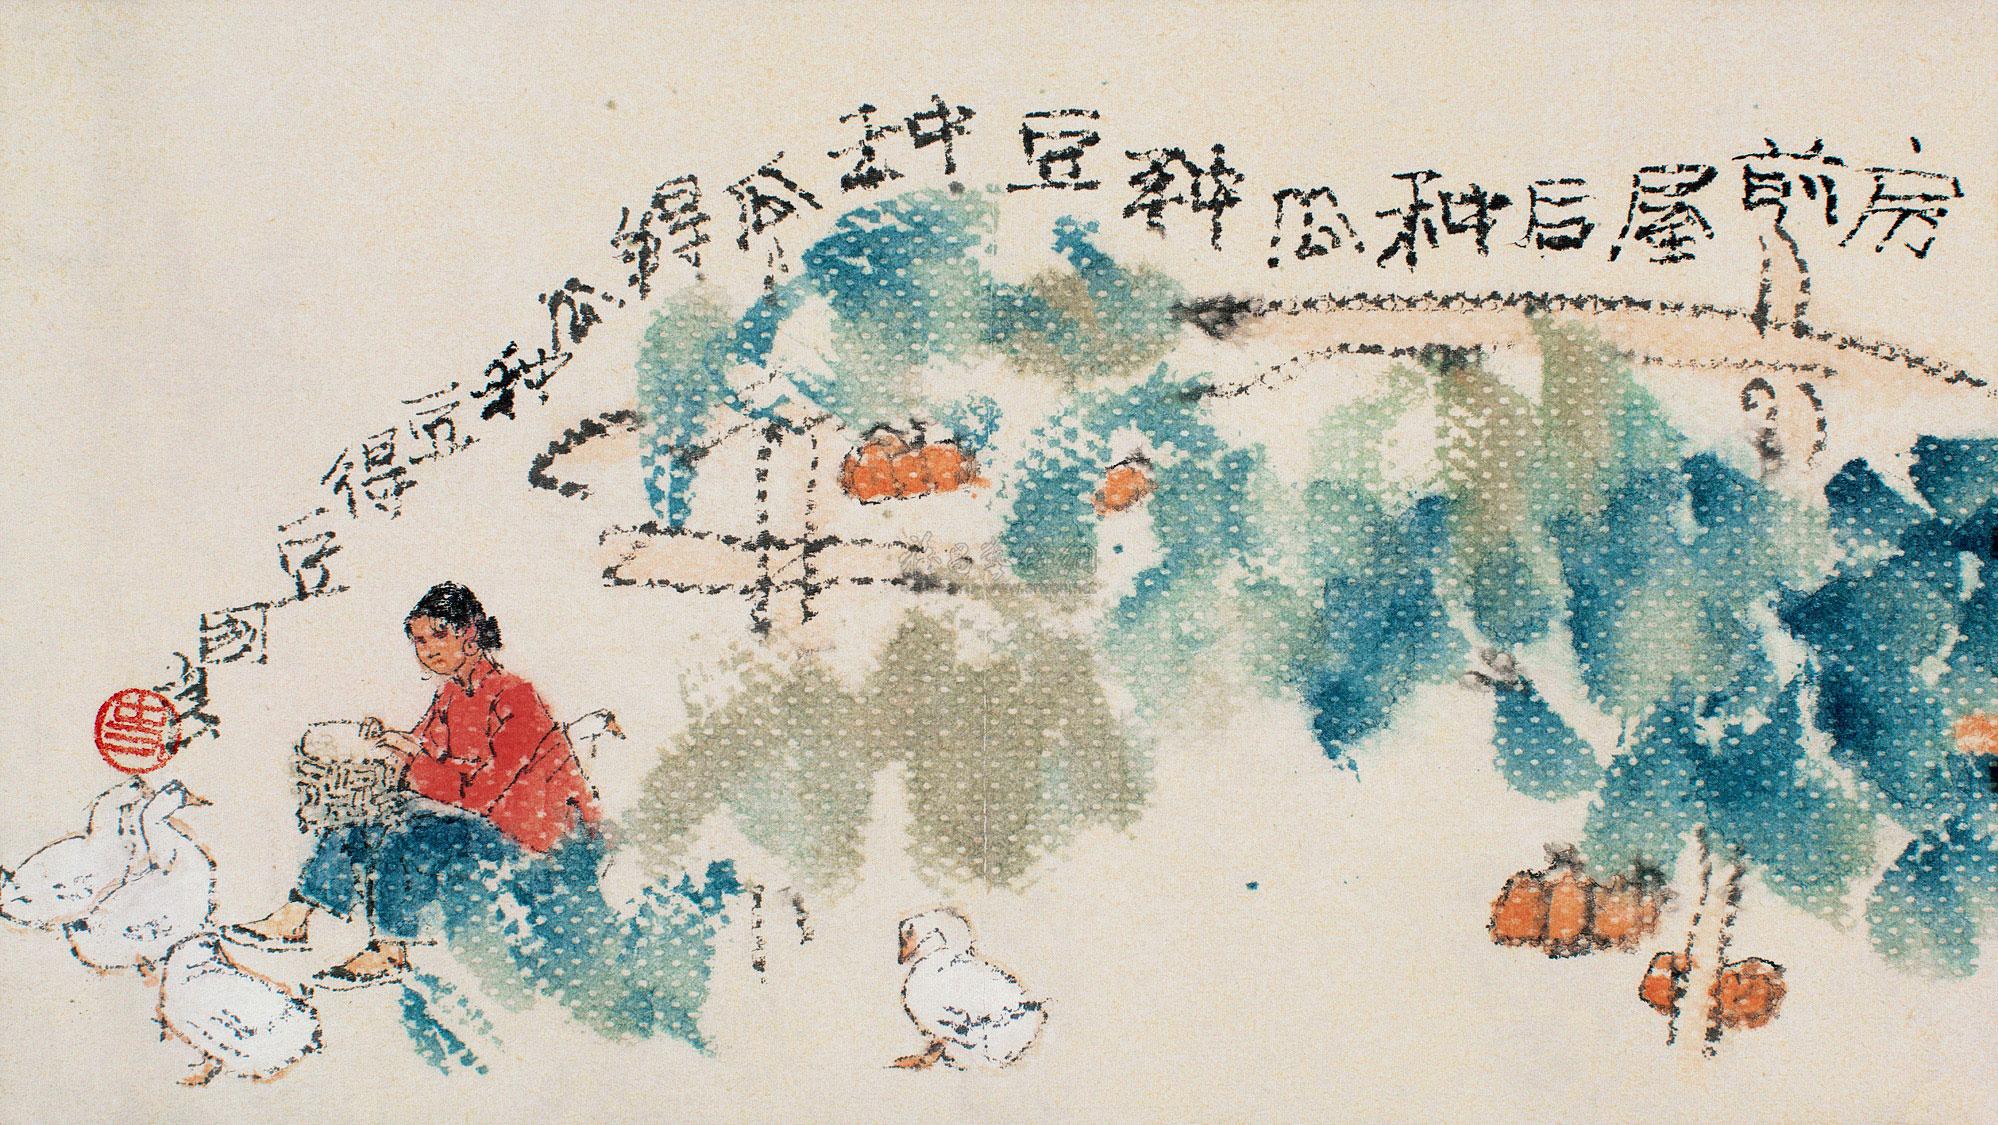 房前屋后种瓜种豆种瓜得瓜种豆得豆国